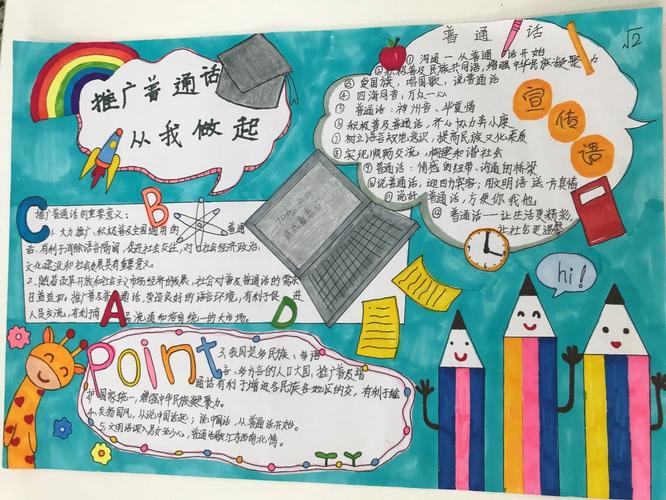 推广普通话
从我做起
普通话
① 沟通—从普通话开始
② 积极普及民族共同语,增强中华民族凝聚力
③ 爱国旗,唱国歌,说普通话
④ 四海同音,万众一心
⑤ 普通话:神州音、华夏情
⑥ 积极普及普通话,齐心协力奔小康
⑦ 树立语言规范意识,提高民族文化素质
⑧ 实现顺畅交流,构建和谐社会
⑨ 普通话:情感的纽带、沟通的桥梁
⑩ 说普通话,迎四方宾客;用文明语,送一片真情
⑪ 说好普通话,方便你我他
⑫ 普通话——让生活更精彩,
让社会更
宣传语
√2
C
B
推广普通话的重要意义:
1、大力推广、积极普及全国通用的普通
话,有利于消除语言隔阂,促进社会交往,对社会经济、政治、
文化建设和社会发展具有重要意义。
2、随着改革开放和社会主义市场经济的发展,社会对普及普通话的需求
日益迫切。推广普及普通话,营造良好的语言环境,有利于促进
人员交流,有利于商品流通和培育统一的大市场。
A
D
hi!
Point
3、我国是多民族、多语
言、多方言的人口大国,推广普及普
通话有利于增进各民族各地区的交,有利于维
护国家统一,增强中华民族凝聚力。
4、爱国,从说中国话起;说中国话,从普通话开始。
5、文明语